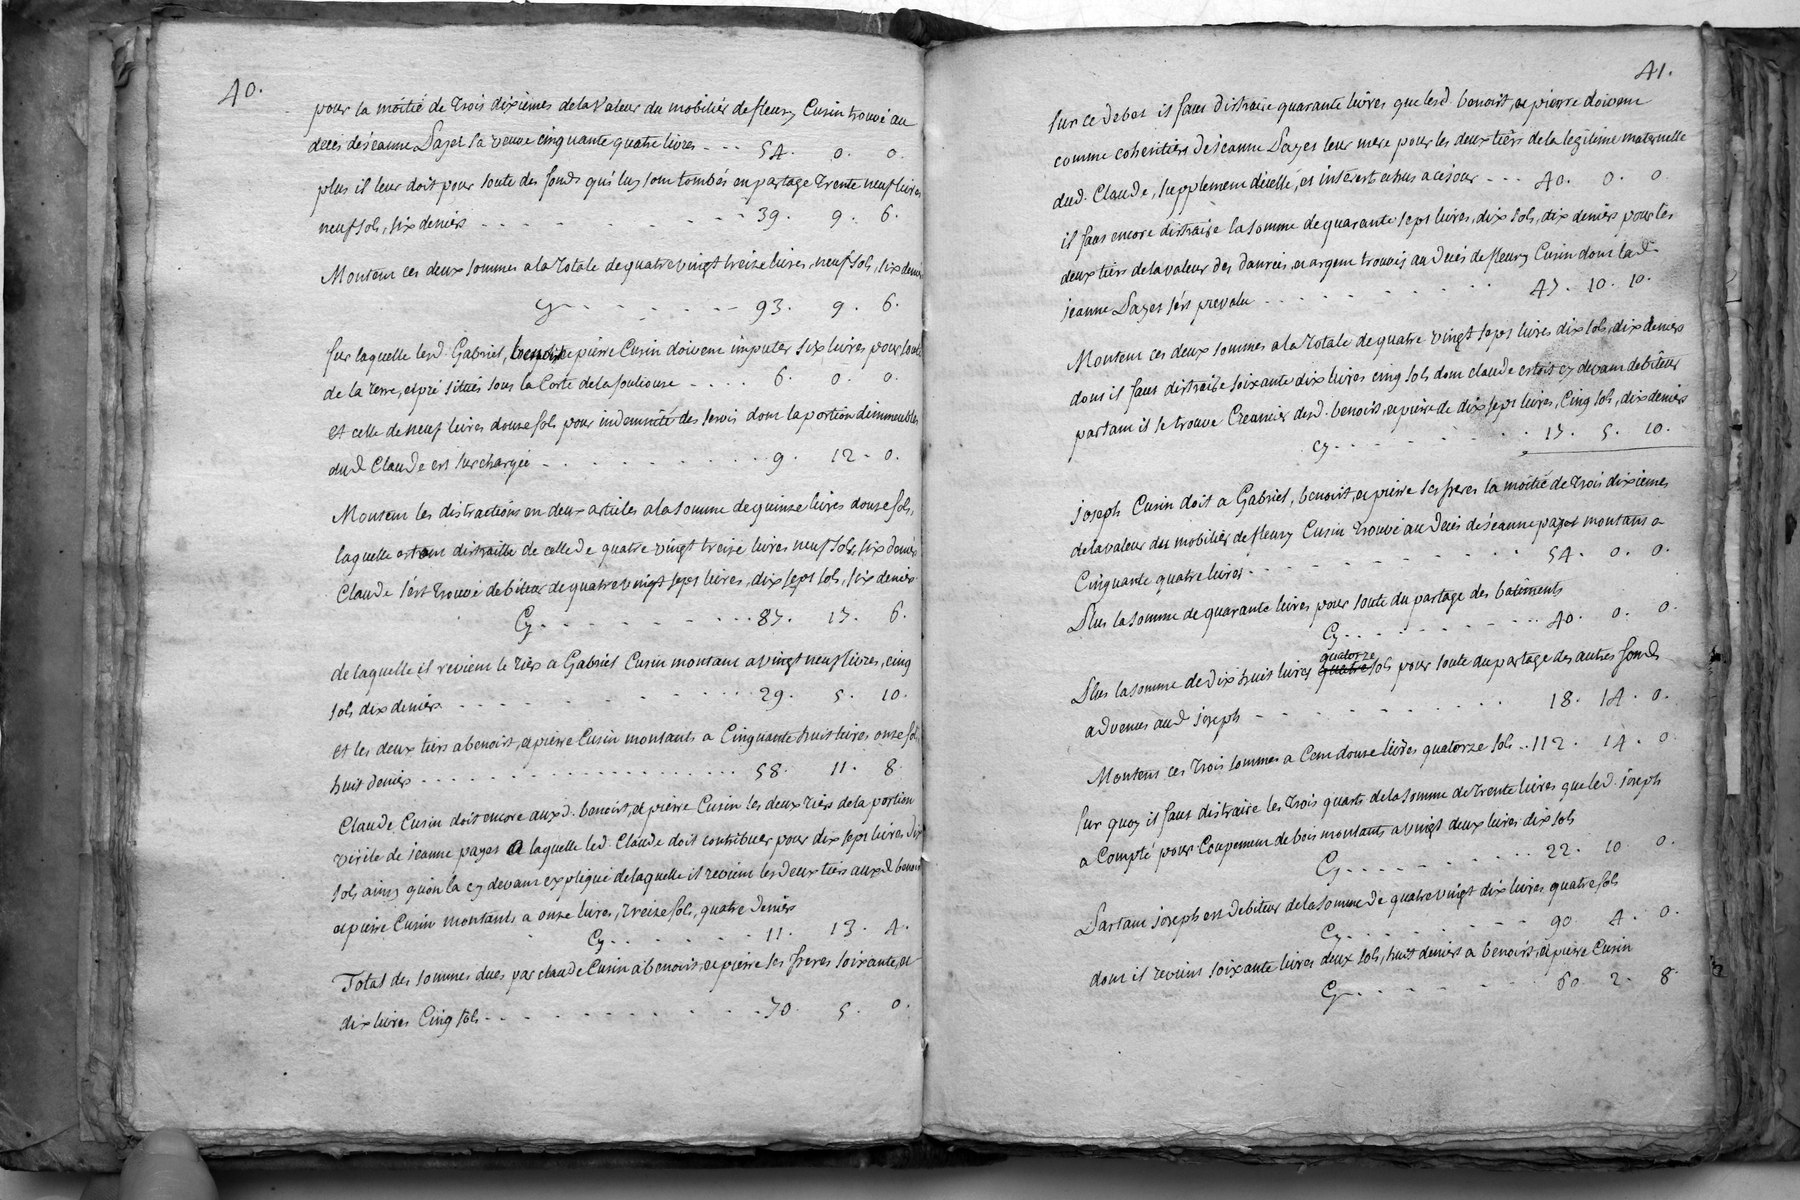 40.
pour la moitié de trois dixiemes de la valeur du mobilier de fleury Cusin trouvé au
deces de jeanne Payet sa veuve cinquante quatre livres - - - 54. 0. 0.
plus il leur doit pour soute des fonds qu'i luy sont tombés en partage trente neuf livres
neuf sols, six deniers - - - - - - - 39. 9. 6.
Montent ces deux sommes a la totale de quatre vingt treize livres, neuf sols, six deniers
cy - - - - - - 93. 9. 6.
sur laquelle lesd. Gabriel, benoist, et pierre Cusin doivent imputer six livres pour soute
de la terre, et pré situés sous la Corte de la soulieuse - - - - 6. 0. 0.
et celle de neuf livres douse sols pour indemnité des servis dont la portion d'immeubles
dud. Claude est surchargée - - - - - - - 9. 12. 0.
Montent les distractions en deux articles a la somme de quinse livres douse sols,
laquelle etant distraitte de celle de quatre vingt treize livres neuf sols, six deniers
Claude s'est trouvé debiteur de quatre vingt sept livres, dix sept sols, six deniers
Cy - - - - - - - 87. 17. 6.
de laquelle il revient le tiers a Gabriel Cusin montant a vingt neuf livres, cinq
sols dix deniers - - - - - - - 29. 5. 10.
et les deux tiers a benoist, et pierre Cusin montants a Cinquante huit livres onse sols,
huit deniers - - - - - - - 58. 11. 8.
Claude Cusin doit encore auxd. benoist, et pierre Cusin les deux tiers de la portion
virile de jeanne payet a laquelle led. Claude doit contribuer pour dix sept livres dix
sols ainsy qu'on la cy devant expliqué de laquelle il revient les deux tiers auxd. benoist
et pierre Cusin montants a onse livres, treise sols, quatre deniers
Cy - - - - - - 11. 13. 4.
Total des sommes dues par claude Cusin a benoist, et pierre ses freres soixante, et
dix livres Cinq sols - - - - - - - 70. 5. 0.
41.
sur ce debet il faut distraire quarante livres que lesd. benoist, et pierre doivent
comme cohéritiers de jeanne Payet leur mere pour les deux tiers de la legitime maternelle
dud. Claude, supplement d'icelle, et interest echus a ce jour - - - 40. 0. 0.
il faut encore distraire la somme de quarante sept livres, dix sols, dix deniers pour les
deux tiers de la valeur des danrées, et argent trouvés au deces de fleury Cusin dont lad.
jeanne Payet s'est prevalu - - - - - - - 47. 10. 10.
Montent ces deux sommes a la totale de quatre vingt sept livres dix sols, dix deniers
dont il faut distraire soixante dix livres cinq sols dont claude estoit cy devant debiteur
partant il se trouve Creancier desd. benoist, et pierre de dix sept livres, Cinq sols, dix deniers
cy - - - - - - - 17. 5. 10.
joseph Cusin doit a Gabriel, benoist, et pierre ses freres la moitié de trois dixiemes
de la valeur des mobilier de fleury Cusin trouvé au deces de jeanne payet montant a
Cinquante quatre livres - - - - - - - 54. 0. 0.
Plus la somme de quarante livres pour soute du partage des batiments
Cy - - - - - - - 40. 0. 0.
quatorze
Plus la somme de dix huit livres quatre sols pour soute du partage des autres fonds
advenus aud. joseph - - - - - - - 18. 14. 0.
Montent ces trois sommes a Cent douse livres quatorze sols - - 112. 14. 0.
sur quoy il faut distraire les trois quarts de la somme de trente livres que led. joseph
a Compté pour Coupement de bois montants a vingt deux livres dix sols
Cy - - - - - - - 22. 10. 0.
Partant joseph est debiteur de la somme de quatre vingt dix livres quatre sols
Cy - - - - - - - 90. 4. 0.
dont il revient soixante livres deux sols, huit deniers a benoist, et pierre Cusin
Cy - - - - - - - 60. 2. 8.